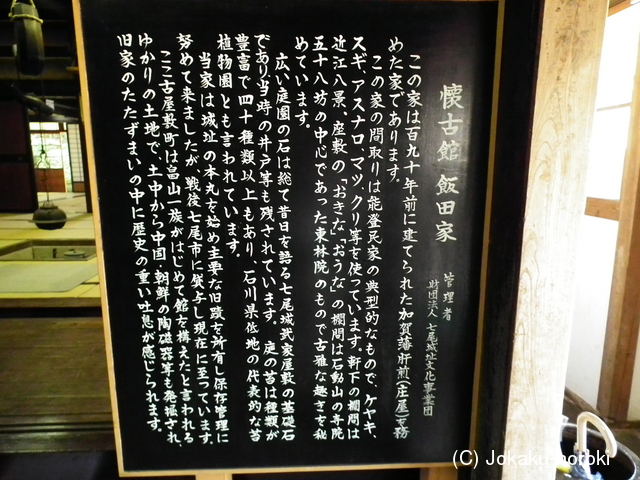 懐古館 飯田家
管理者
財団法人 七尾城址文化事業団
この家は百九十年前に建てられた加賀藩肝煎(庄屋)を務
めた家であります。
この家の間取りは能登民家の典型的なもので、ケヤキ、
スギ、アスナロ、マツ、クリ等を使っています。軒下の欄間は
近江八景、座敷の「おきな」「おうな」の欄間は石動山の寺院
五十八坊の中心であった東林院のもので古雅な趣きを秘
めています。
広い庭園の石は総て昔日を語る七尾城武家屋敷の基礎石
であり当時の井戸等も残されています。庭の苔は種類が
豊富で四十種類以上もあり、石川県低地の代表的な苔
植物園とも言われています。
当家は城址の本丸を始め主要な旧蹟を所有し保存管理に
努めて来ましたが戦後七尾市に貸与し現在に至っています。
ここ古屋敷町は畠山一族がはじめて館を構えたと言われる
ゆかりの土地で、土中から中国・朝鮮の陶磁器等も発掘され、
旧家のたたずまいの中に歴史の重い吐息が感じられます。
(C) Jokaku-horoki